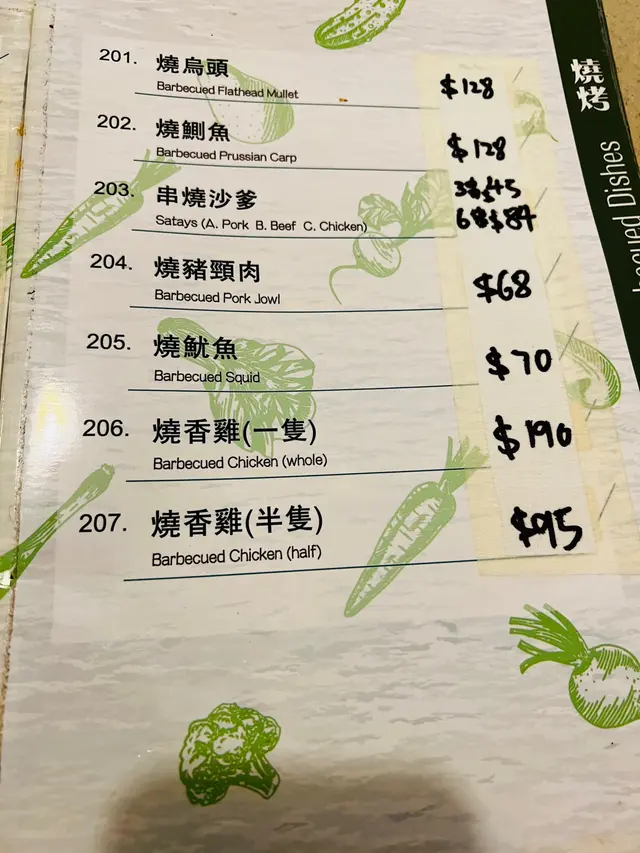 燒烤
Barbecued Dishes
201. 燒烏頭 $128
Barbecued Flathead Mullet
202. 燒鰂魚 $128
Barbecued Prussian Carp
203. 串燒沙爹 3串$45
Satays (A. Pork B. Beef C. Chicken) 6串$84
204. 燒豬頸肉 $68
Barbecued Pork Jowl
205. 燒魷魚 $70
Barbecued Squid
206. 燒香雞(一隻) $190
Barbecued Chicken (whole)
207. 燒香雞(半隻) $95
Barbecued Chicken (half)